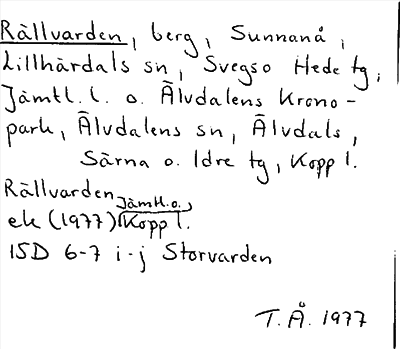 Rällvarden, berg, Sunnanå,
Lillhärdals sn, Svegso Hede tg,
Jämtl. l. o. Älvdalens Krono-
park, Älvdalens sn, Älvdals,
Särna o. Idre tg, Kopp l.
Rällvarden Jämtl. o.,
ek (1977) Kopp l.
15D 6-7 i-j Storvarden
T. Å. 1977